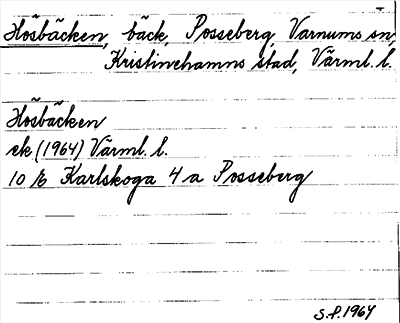 Hošbäcken, bäck, Posseberg, Varnums sn,
Kristinehamns stad, Värml. l.
Hošbäcken
ek (1964) Värml. l.
10 E Karlskoga 4 a Posseberg
S.P. 1964